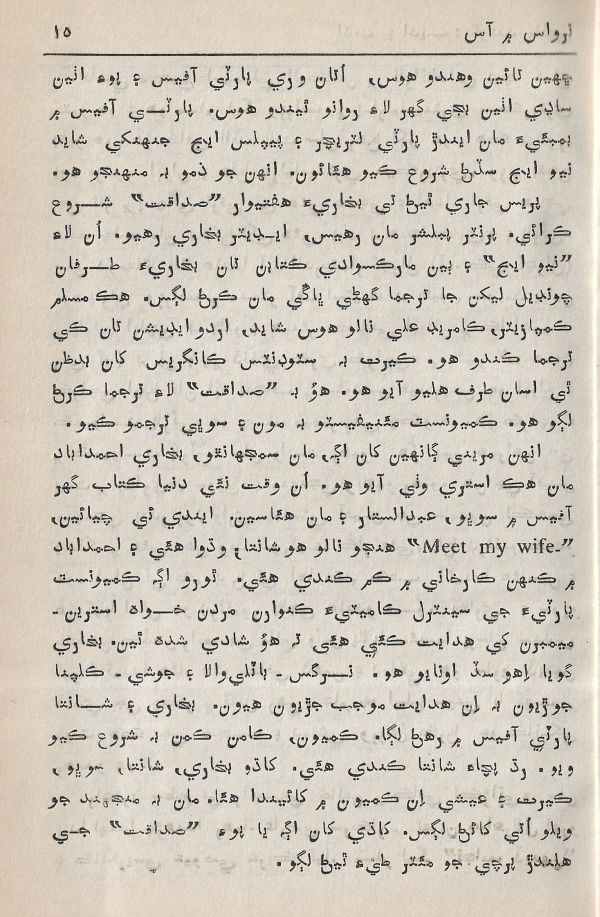 نرواس ۾ آس ١٥
ڇهين تائين وهندو هوس، اُتان وري پارٽي آفيس ۽ پوءِ اٺين
ساڍي اٺين بجي گهر لاءِ روانو ٿيندو هوس. پارٽي آفيس ۾
بمبئيءَ مان ايندڙ پارٽي لٽريچر ۽ پيپلس ايج جنهنکي شايد
نيو ايج سڏڻ شروع ڪيو هئائون. انهن جو ذمو بہ منهنجو هو.
پريس جاري ٿيڻ تي بخاريءَ هفتيوار ”صداقت“ شروع
ڪرائي. پرنٽر پبلشر مان رهيس، ايڊيٽر بخاري رهيو. اُن لاءِ
”نيو ايج“ ۽ ٻين مارڪسوادي ڪتابن تان بخاريءَ طرفان
چونڊيل ليکن جا ترجما گهڻي ڀاڱي مان ڪرڻ لڳس. هڪ مسلم
ڪمپازيٽر، ڪامريڊ علي نالو هوس شايد، اردو ايڊيشن تان ڪي
ترجما ڪندو هو. ڪيرت بہ سٽوڊنٽس ڪانگريس کان بدظن
ٿي اسان طرف هليو آيو هو. هوُ بہ ”صداقت“ لاءِ ترجما ڪرڻ
لڳو هو. ڪميونسٽ مئنيفيسٽو بہ مون ۽ سوڀي ترجمو ڪيو.
انهن مڙيني ڳالهين کان اڳ، مان سمجهانٿو، بخاري احمدآباد
مان هڪ استري وٺي آيو هو. اُن وقت نئي دنيا ڪتاب گهر
آفيس ۾ سوڀو، عبدالستار ۽ مان هئاسين. ايندي ئي چيائين،
”Meet my wife-“ هنجو نالو هو شانتا، وڌوا هئي ۽ احمدآباد
۾ ڪنهن ڪارخاني ۾ ڪم ڪندي هئي. ٿورو اڳ ڪميونسٽ
پارٽيءَ جي سينٽرل ڪاميٽيءَ ڪنوارن مردن خواه استرين -
ميمبرن کي هدايت ڪئي هئي تہ هوُ شادي شده ٿين. بخاري
گويا اِهو سڏ اونايو هو. نرگس - باٽلي‌والا ۽ جوشي - ڪلپنا
جوڙيون بہ اِن هدايت موجب جڙيون هيون. بخاري ۽ شانتا
پارٽي آفيس ۾ رهڻ لڳا. ڪميون، ڪامن ڪمن بہ شروع ڪيو
ويو. رڌ پچاءُ شانتا ڪندي هئي. کاڌو بخاري، شانتا، سوڀو،
ڪيرت ۽ عيشي اِن ڪميون ۾ کائيندا هئا. مان بہ منجهند جو
ويلو اُتي کائڻ لڳس. کاڌي کان اڳ يا پوءِ ”صداقت“ جي
هلندڙ پرچي جو مئٽر طيءِ ٿيڻ لڳو.